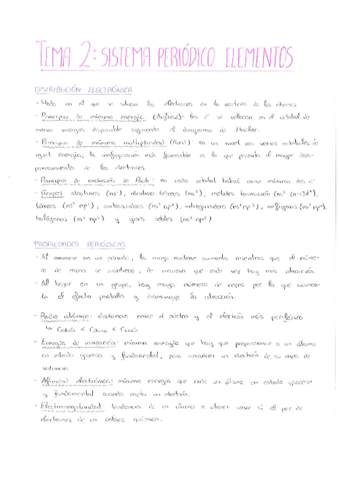 TEMA 2: SISTEMA PERIÓDICO ELEMENTOS
DISTRIBUCIÓN ELECTRÓNICA
- Modo en el que se sitúan los electrones en la corteza de los átomos
- Principio de mínima energía (Aufbau): los e⁻ se colocan en el orbital de
menor energía disponible siguiendo el diagrama de Moeller.
- Principio de máxima multiplicidad (Hund): en un nivel con varios orbitales de
igual energía, la configuración más favorable es la que permita el mayor desa-
pareamiento de los electrones.
- Principio de exclusión de Pauli: en cada orbital habrá como máximo dos e⁻
- Grupos: alcalinos (ns¹), alcalinos térreos (ns²), metales transición (ns² (n-1)dˣ),
térreos (ns² np¹), carbonoideos (ns² np²), nitrogenoideos (ns² np³), anfígenos (ns² np⁴),
halógenos (ns² np⁵) y gases nobles (ns² np⁶)
PROPIEDADES PERIÓDICAS
- Al avanzar en un periodo, la carga nuclear aumenta mientras que el núme-
ro de capas se mantiene, de manera que cada vez hay más atracción.
- Al bajar en un grupo, hay mayor número de capas por lo que aumen-
ta el efecto pantalla y disminuye la atracción.
- Radio atómico: distancia entre el núcleo y el electrón más periférico
↳ Catión < Átomo < Anión
- Energía de ionización: mínima energía que hay que proporcionar a un átomo
en estado gaseoso y fundamental, para arrancar un electrón de su capa de
valencia.
- Afinidad electrónica: mínima energía que cede un átomo en estado gaseoso
y fundamental cuando capta un electrón.
- Electronegatividad: tendencia de un átomo a atraer hacia sí el par de
electrones de un enlace químico.